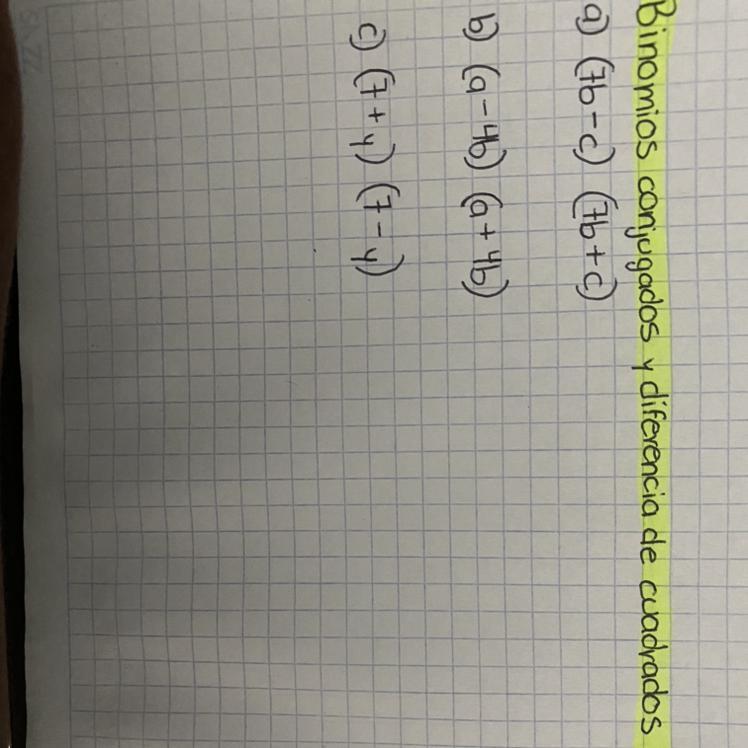 Binomios conjugados y diferencia de cuadrados
a) (7b-c) (7b+c)
b) (a-4b) (a+4b)
c) (7+y) (7-y)